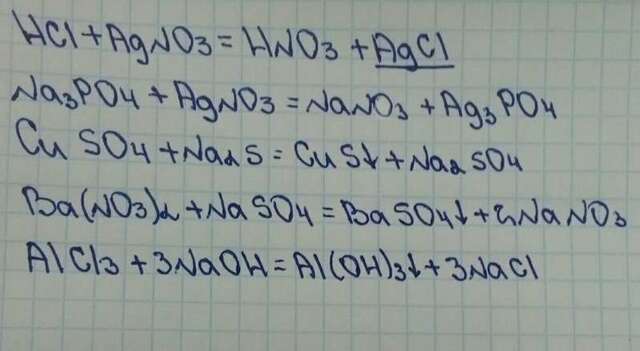 HCl + AgNO3 = HNO3 + AgCl
Na3PO4 + AgNO3 = NaNO3 + Ag3PO4
CuSO4 + Na2S = CuS↓ + Na2SO4
Ba(NO3)2 + NaSO4 = BaSO4↓ + 2NaNO3
AlCl3 + 3NaOH = Al(OH)3↓ + 3NaCl